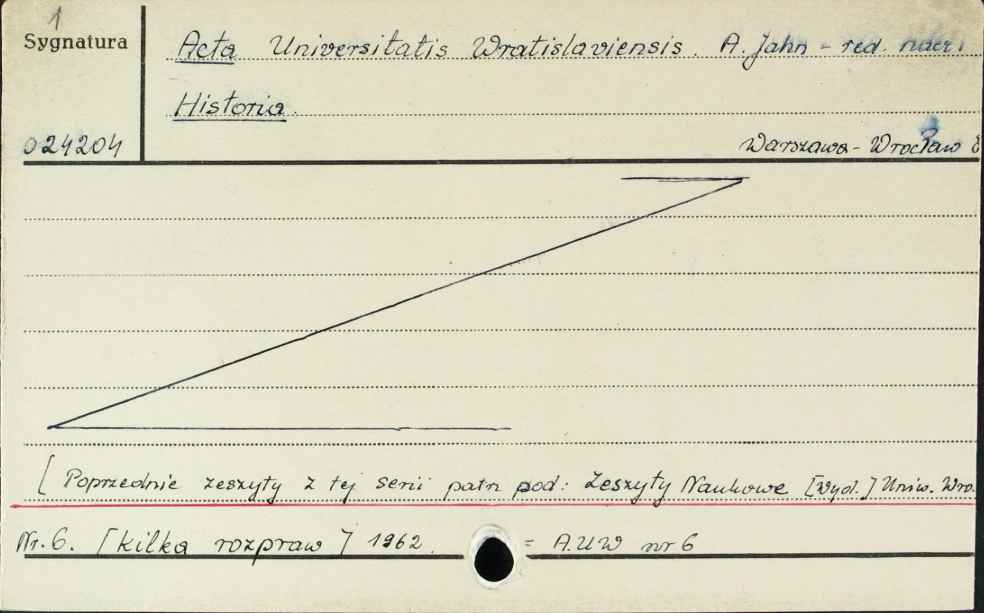 1
Sygnatura
Acta Universitatis Wratislaviensis. A. Jahn - red. nacz.
Historia.
024204
Warszawa - Wrocław
[ Poprzednie zeszyty z tej serii patrz pod: Zeszyty Naukowe [Wyd.] Uniw. Wro.
Nr. 6. [kilka rozpraw] 1962. = A.U.W nr 6